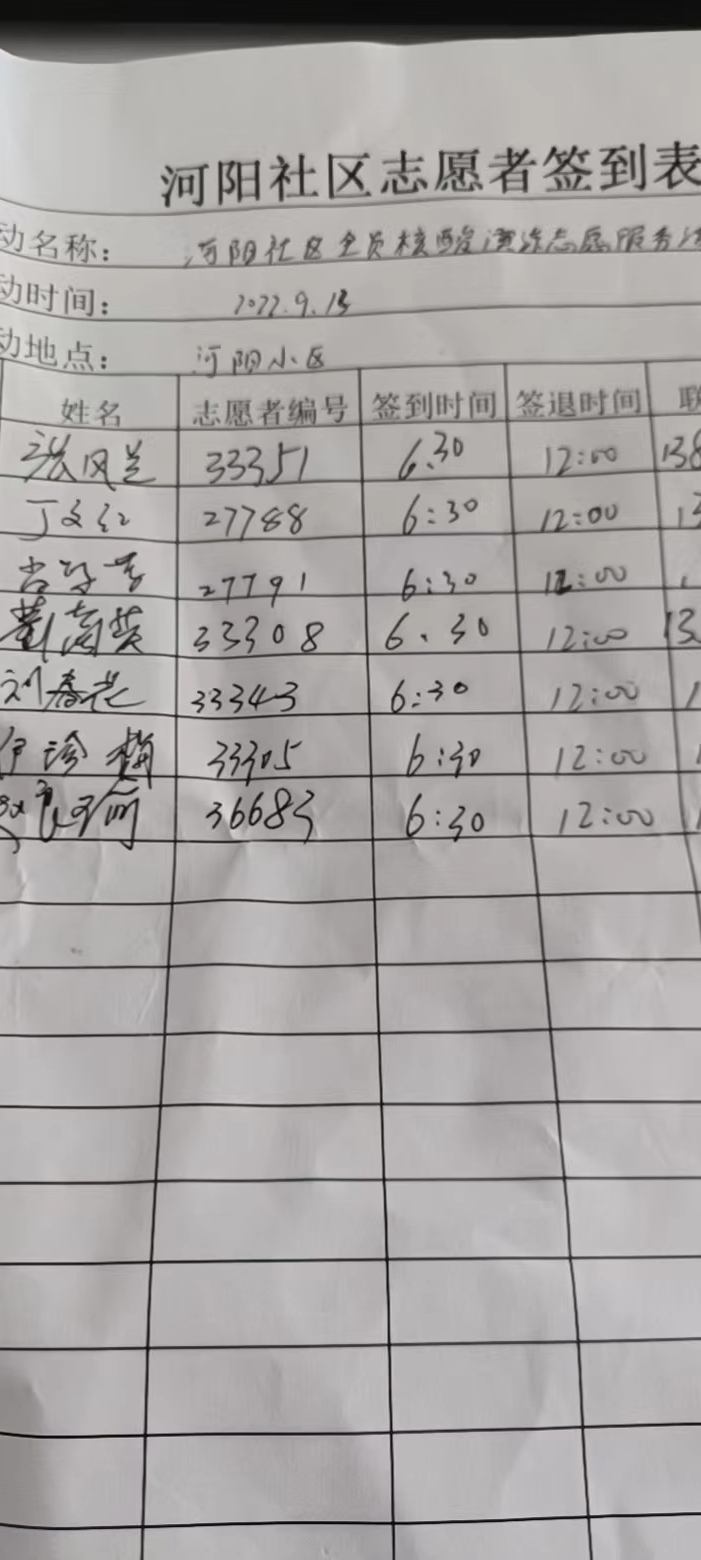 河阳社区志愿者签到表
动名称： 河阳社区全员核酸演练志愿服务活
动时间： 2022.9.13
动地点： 河阳小区
姓名 志愿者编号 签到时间 签退时间 联
张风兰 33351 6.30 12:00 138
丁文红 27788 6:30 12:00 13
27791 6:30 12:00
33308 6.30 12:00 13
刘春花 33343 6:30 12:00 1
伊珍梅 33305 6:30 12:00 1
36683 6:30 12:00 1